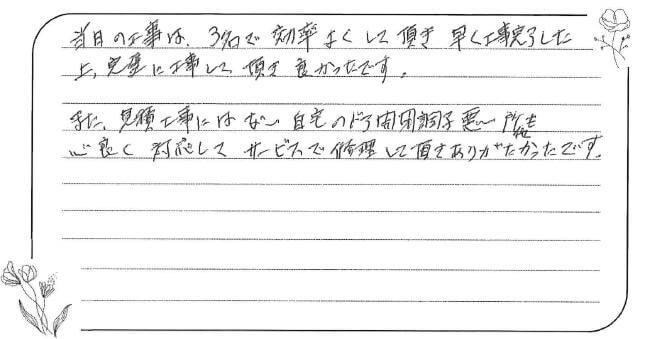 当日の工事は、3名で効率よくして頂き早く工事完了した
上、完璧に工事して頂き良かったです。
また、見積工事にはない自宅のドア開閉調子悪い所も
心良く対応してサービスで修理して頂きありがたかったです。